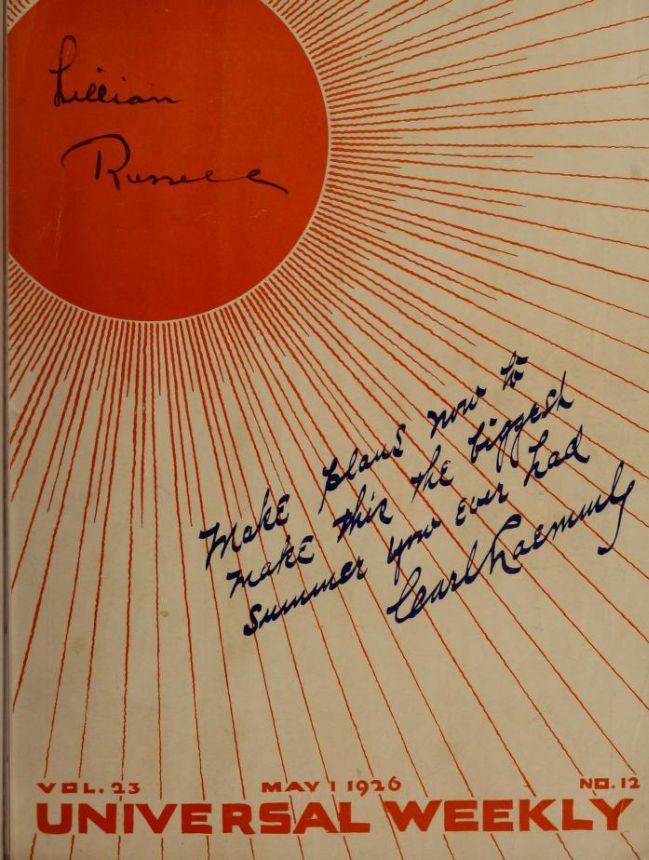 Lillian
Russell
Make plans now to
make this the biggest
summer you ever had
Carl Laemmle
VOL. 23 MAY 1 1926 NO. 12
UNIVERSAL WEEKLY